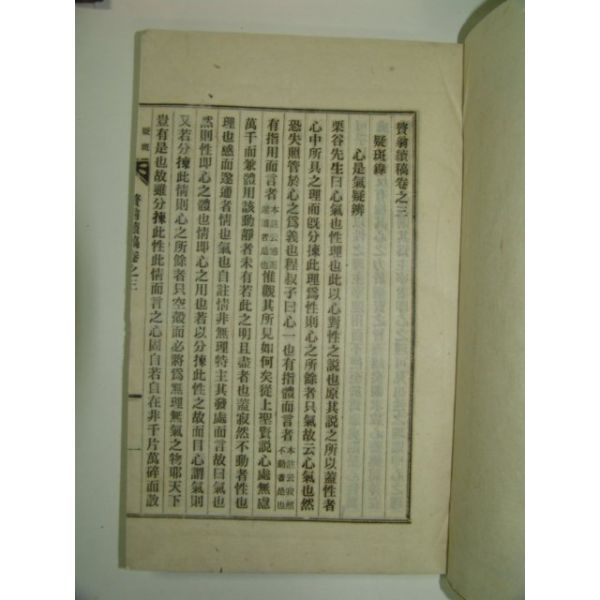 贅翁續稿卷之三
疑斑錄
心是氣疑辨
栗谷先生曰心氣也性理也此以心對性之說也原其說之所以蓋性者
心中所具之理而旣分揀此理爲性則心之所餘者只氣故云心氣也然
恐失照管於心之爲義也程叔子曰心一也有指體而言者本註云寂然不動者是也
有指用而言者本註云感而遂通者是也惟觀其所見如何矣從上聖賢說心處無慮
萬千而兼體用該動靜者未有若此之明且盡者也蓋寂然不動者性也
理也感而遂通者情也氣也自註情非無理特主其發處而言故曰氣也
然則性即心之體也情即心之用也若以分揀此性之故而目心謂氣則
又若分揀此情則心之所餘者只空殼而必將爲無理無氣之物耶天下
豈有是也故雖分揀此性此情而言之心固自若自在非千片萬碎而散
疑斑
贅翁續稿卷之三
一